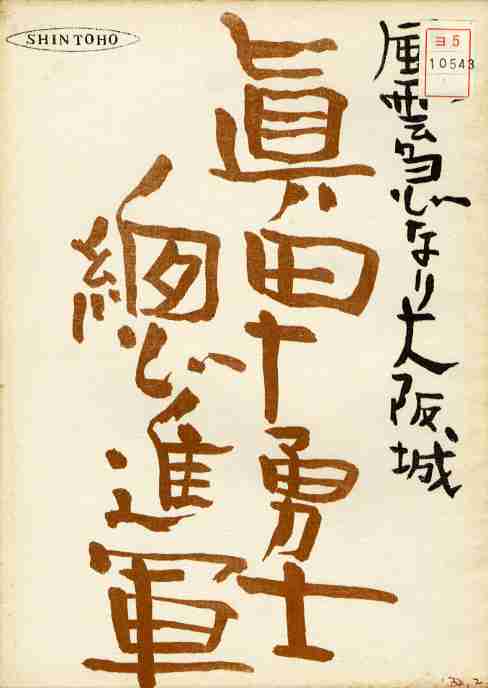 SHINTOHO
ヨ5
10543
風雲急なり大阪城
眞田十勇士
總進軍